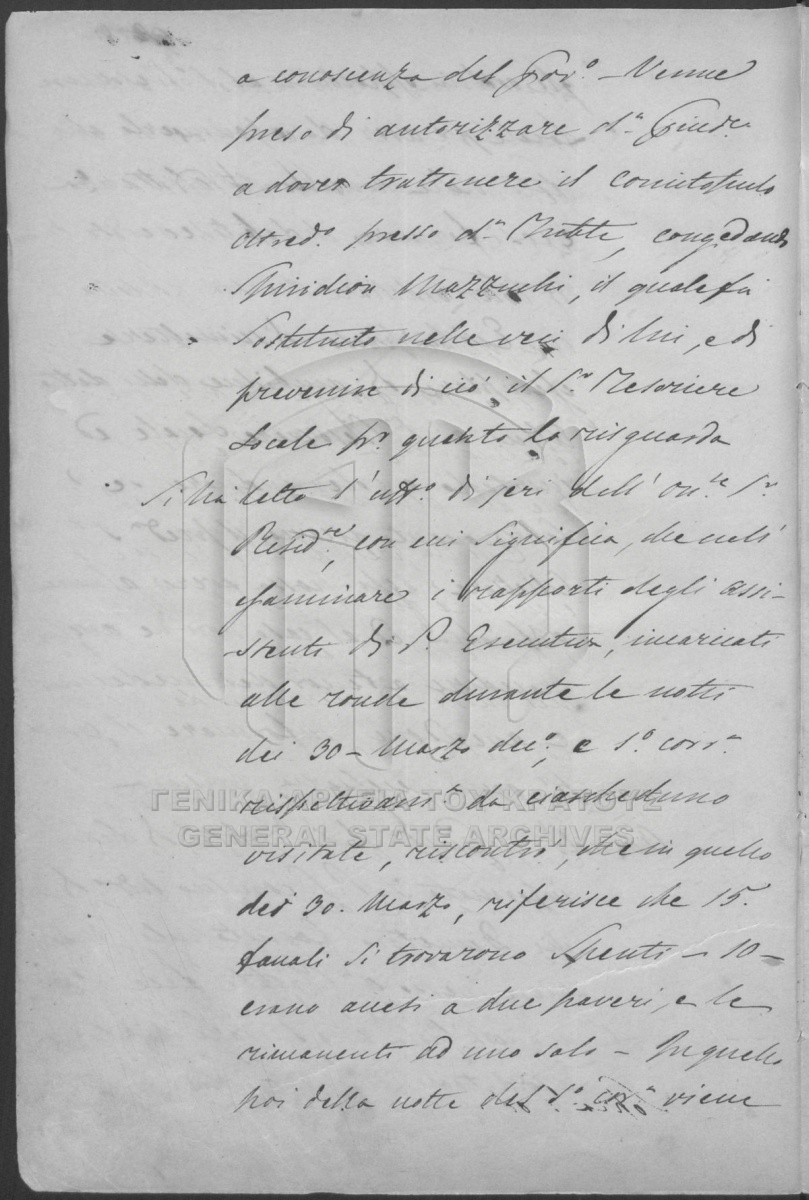 a conoscenza del Gov.º – Venne
preso di autorizzare d.ⁿ
a dover trattenere il
presso d.ⁿ congedando
Spiridion Mazzuchi, il quale fù
Sostituito nelle veci di lui, e di
prevenire di ciò il S.ʳ Tesoriere
Locale p.ʳ quanto lo risguarda
Si ha letto l'uff.º di jeri dell' on.ˡᵉ S.ʳ
Resid.ᵗᵉ, con cui significa, che nell'
esaminare i rapporti degli assi-
stenti di P. Esecutiva, incaricati
alle ronde durante le notti
dei 30 – Marzo dec.º, e 1.º corr.ᵉ
rispettivam.ᵉ da ciascheduno
visitate, riscontrò, che in quello
dei 30. Marzo, riferisce che 15.
fanali si trovarono spenti – 10 –
erano accesi a due paveri, e le
rimanenti ad uno solo – In quello
poi della notte del 1.º cor.ᵉ viene
ΓΕΝΙΚΑ ΑΡΧΕΙΑ ΤΟΥ ΚΡΑΤΟΥΣ
GENERAL STATE ARCHIVES